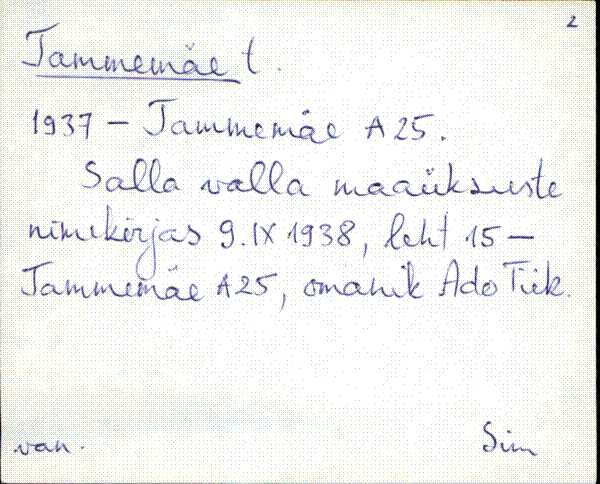 2
Tammemäe t.
1937 - Tammemäe A 25.
Salla valla maaüksuste
nimekirjas 9.IX 1938, leht 15 -
Tammemäe A25, omanik Ado Tiik.
van.
Sim